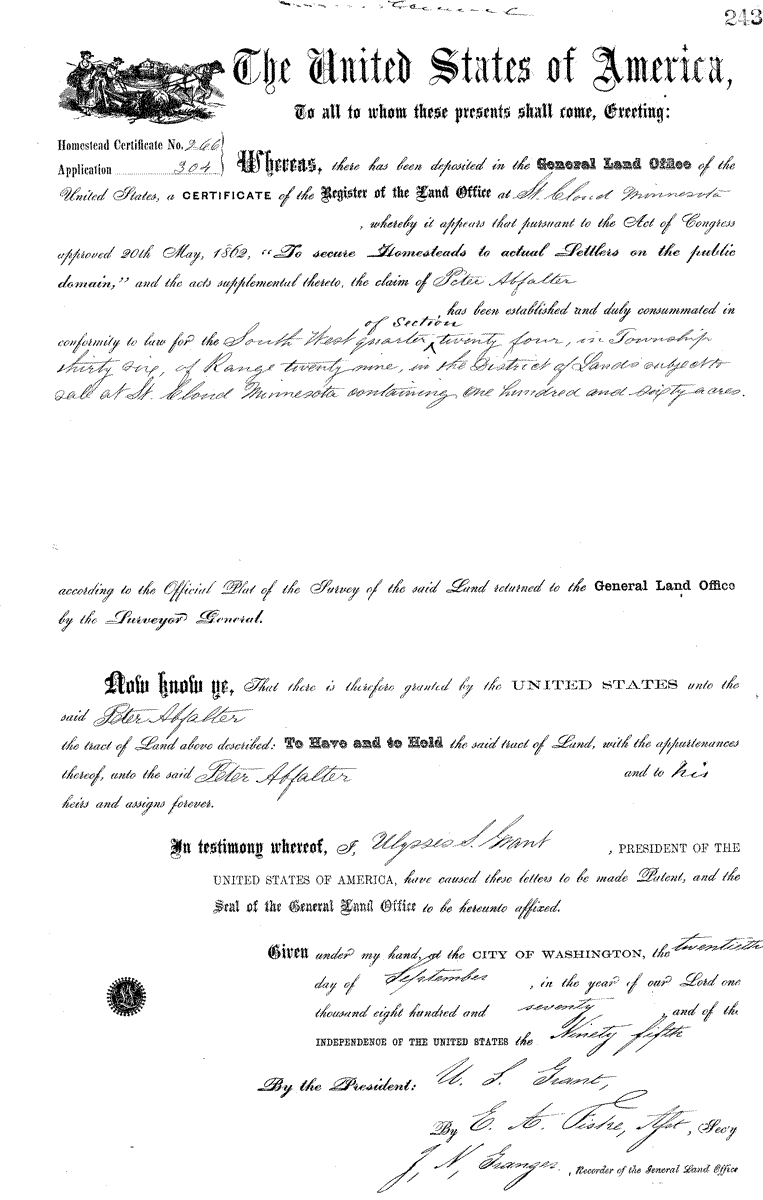 243
The United States of America,
To all to whom these presents shall come, Greeting:
Homestead Certificate No. 266
Application 304
Whereas, there has been deposited in the General Land Office of the
United States, a CERTIFICATE of the Register of the Land Office at St. Cloud Minnesota
, whereby it appears that pursuant to the Act of Congress
approved 20th May, 1862, "To secure Homesteads to actual Settlers on the public
domain," and the acts supplemental thereto, the claim of Peter Abfalter
has been established and duly consummated in
of Section
conformity to law for the South West quarter twenty four, in Township
thirty six, of Range twenty nine, in the District of Lands subject to
sale at St. Cloud Minnesota containing one hundred and sixty acres.
according to the Official Plat of the Survey of the said Land returned to the General Land Office
by the Surveyor General.
Now know ye, That there is therefore granted by the UNITED STATES unto the
said Peter Abfalter
the tract of Land above described: To Have and to Hold the said tract of Land, with the appurtenances
thereof, unto the said Peter Abfalter and to his
heirs and assigns forever.
In testimony whereof, I, Ulysses S. Grant, PRESIDENT OF THE
UNITED STATES OF AMERICA, have caused these letters to be made Patent, and the
Seal of the General Land Office to be hereunto affixed.
Given under my hand, at the CITY OF WASHINGTON, the twentieth
day of September, in the year of our Lord one
thousand eight hundred and seventy, and of the
INDEPENDENCE OF THE UNITED STATES the Ninety fifth
By the President: U. S. Grant,
By E. A. Fiske, Asst, Sec'y
J. N. Granger, Recorder of the General Land Office